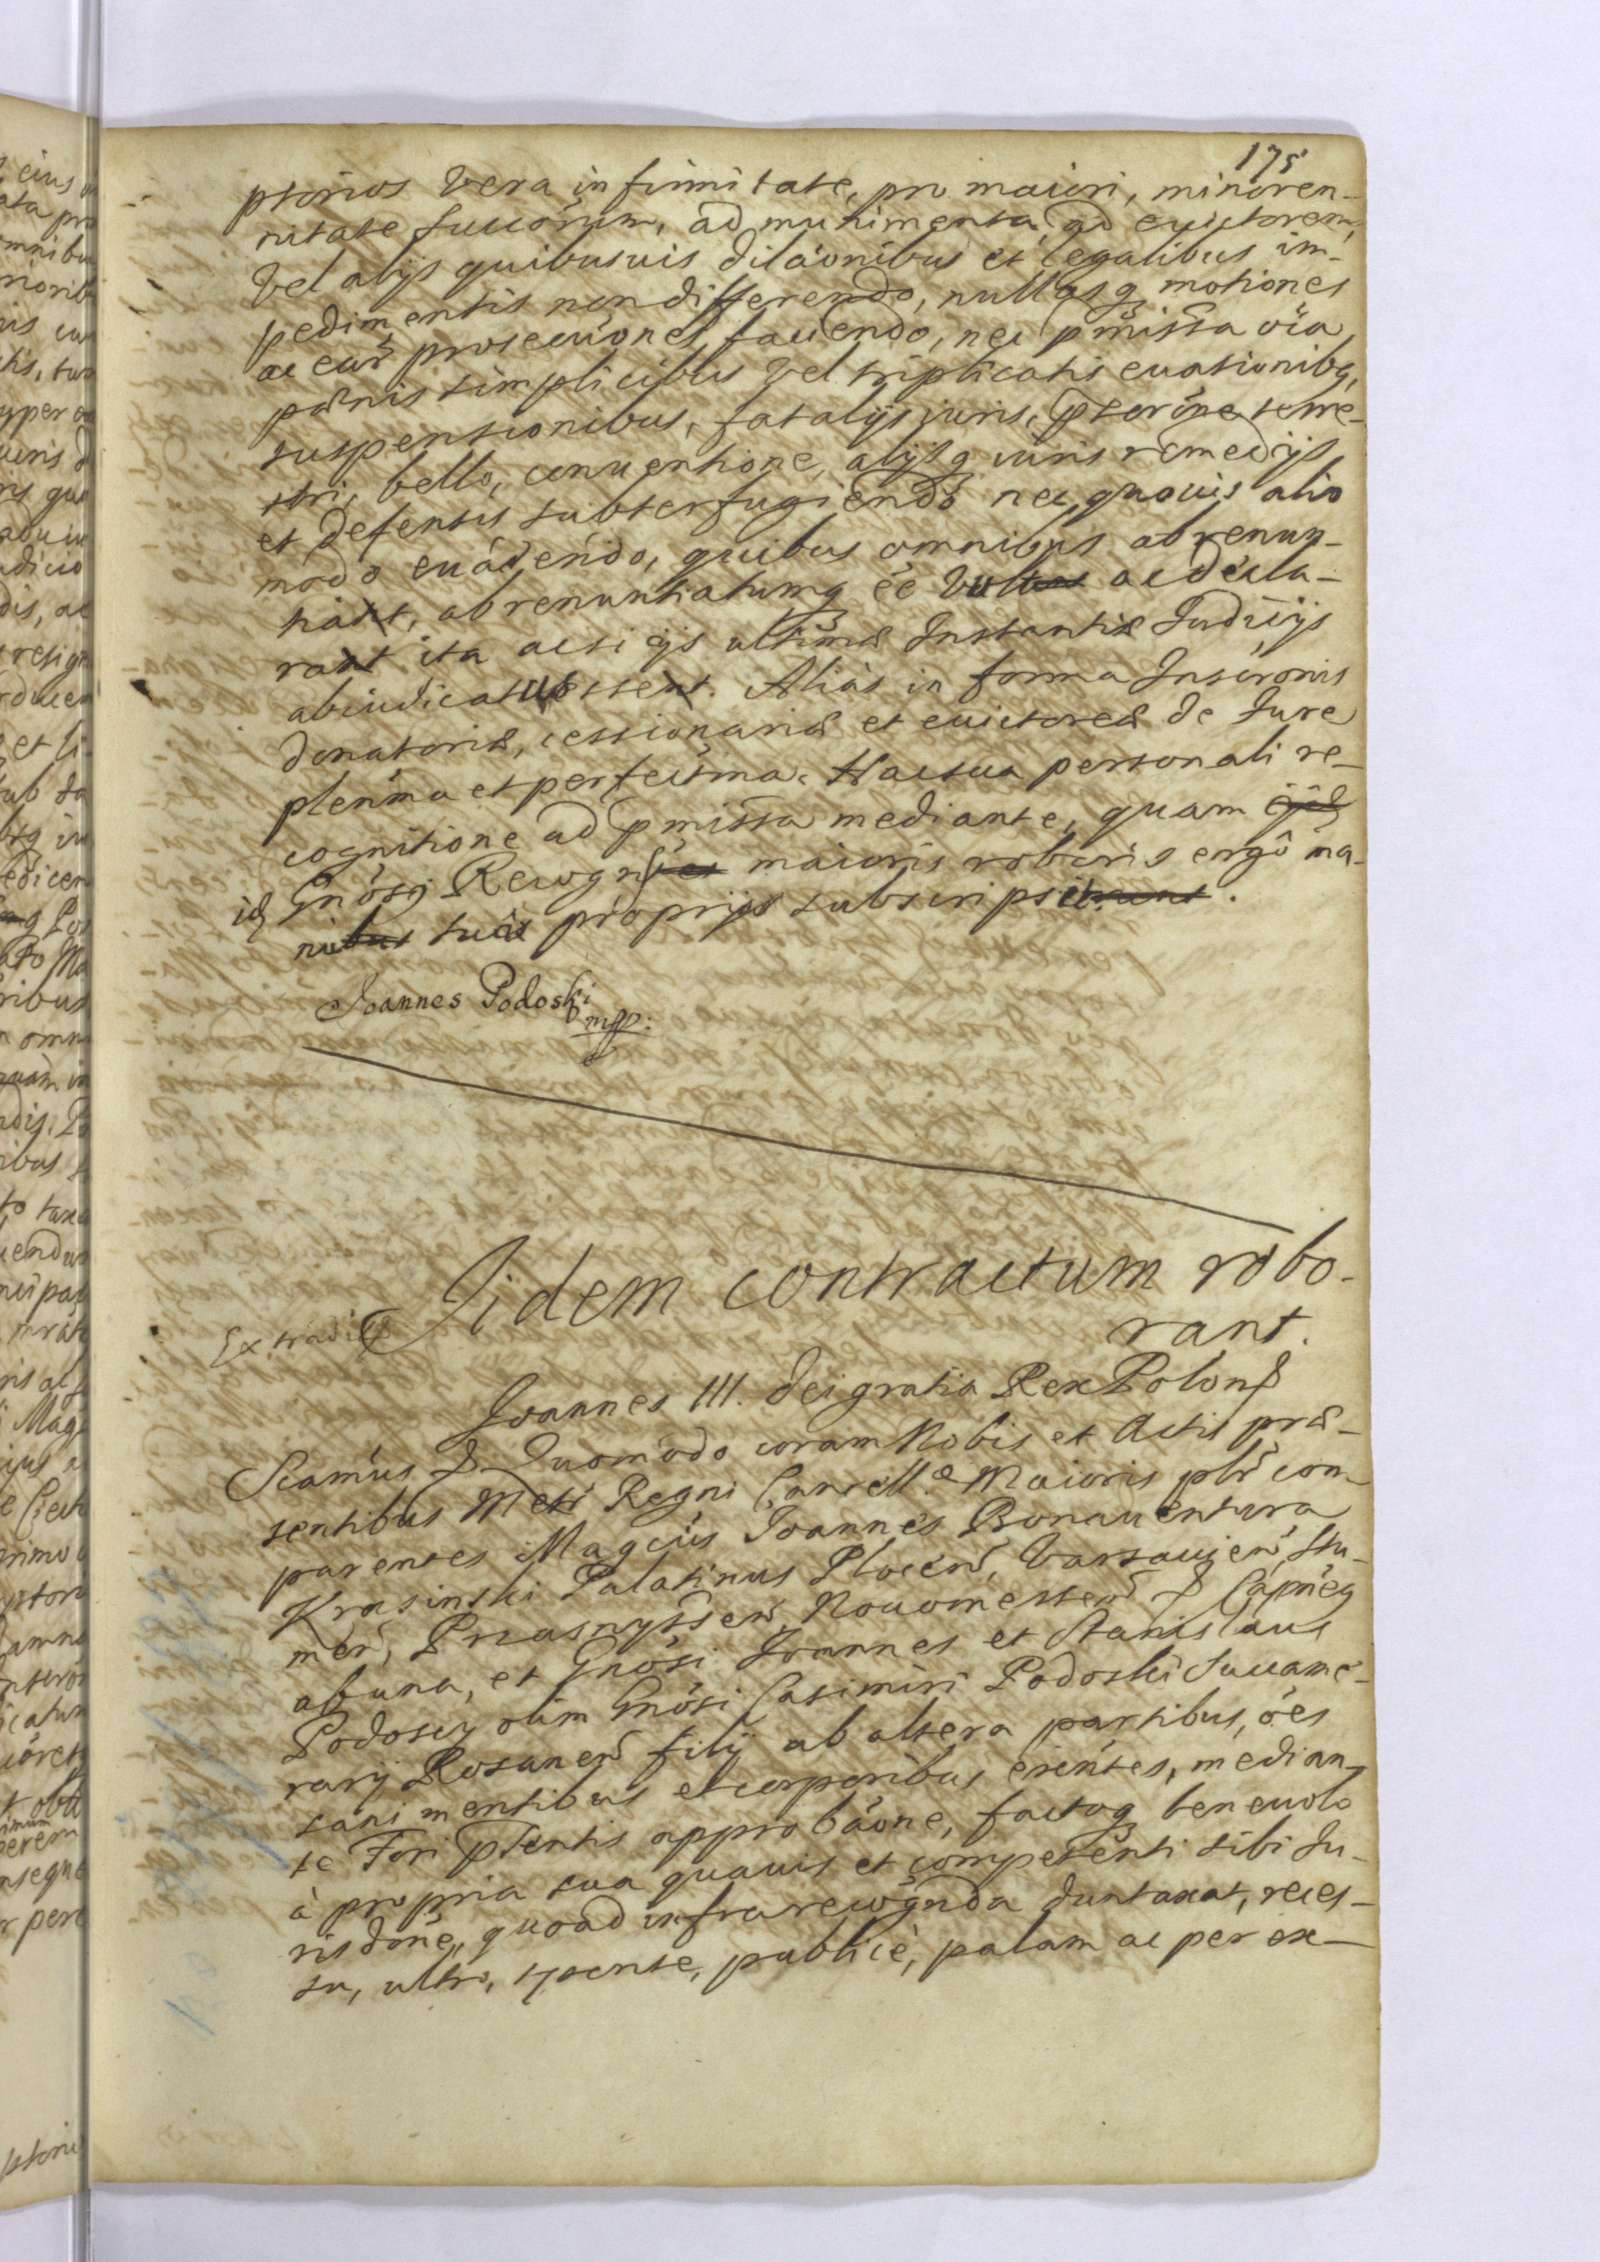 175
ptorios vera infirmitate, pro maiori, minoren-
nitate succorum, ad munimenta, ad evictorem,
vel alijs quibusuis dilaonibus et legalibus im-
pedimentis non differendo, nullasq motiones
ac eor prosecuiones fauendo, nec pmissa oia
paenis simplicibus vel triplicatis euationibq,
suspensionibus, fatalijs juris, pscrone terre-
stri, bello, conuentione, alijsq iuris remedijs
et defensis subterfugiendo nec quouis alio
modo euadendo, quibus omnibus abrenun-
tiat, abrenuntiatumq ee vult ac decla-
rat ita acsi ijs ultimae Instantiae Iudicijs
abiudicatus esset. Aliàs in forma Inscronis
donatoriae, cessionariae et euictoreae de Iure
plenima et perfectima. Hac sua personali re-
cognitione ad pmissa mediante, quam
id Gnosus Recogns maioris roboris ergô ma-
nu suâ propria subscripsit.
Joannes Podoski
mpp:
Iidem contractum robo-
rant.
Extradit
Joannes III. Dei gratia Rex Polon &
Scamus & Quomodo coram Nobis et Actis prae-
sentibus Metr Regni Cancell.ae Maioris plr com
parentes Magcus Joannes Bonauentura
Krasinski Palatinus Plocen, Varsauien, Stu-
men, Przasnyssen, Nouomesten & Capneq
ab una, et Gnosi Joannes et Stanislaus
Podoscy olim Gnosi Casimiri Podoski Succame-
rarij Rosanen filij ab altera partibus, oes
sani mentibus et corporibus exientes, median-
te Fori pntis approbaone, factoq beneuolo
à propria sua quauis et competenti sibi Iu-
risdone, quoad infra recognda duntaxat, reces-
su, ultro, sponte, publicè, palam ac per ex-